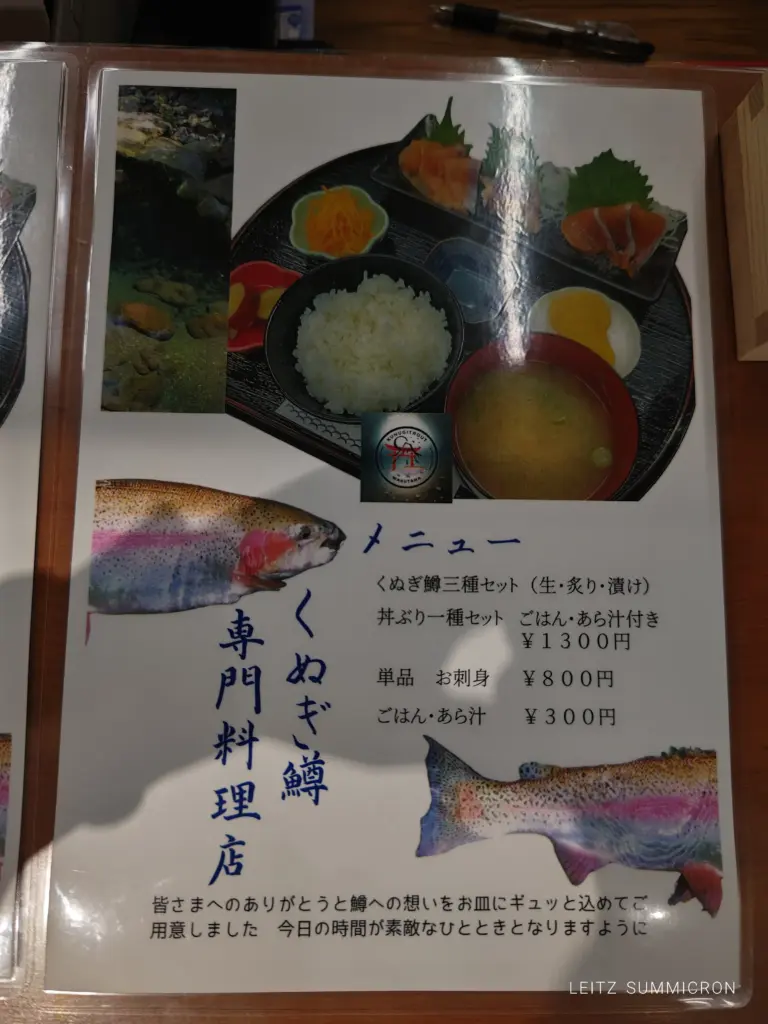 KUNUGITROUT
メニュー
くぬぎ鱒三種セット（生・炙り・漬け）
丼ぶり一種セット　ごはん・あら汁付き
￥１３００円
単品　お刺身　￥８００円
ごはん・あら汁　￥３００円
くぬぎ鱒
専門料理店
皆さまへのありがとうと鱒への想いをお皿にギュッと込めてご
用意しました　今日の時間が素敵なひとときとなりますように
LEITZ SUMMICRON